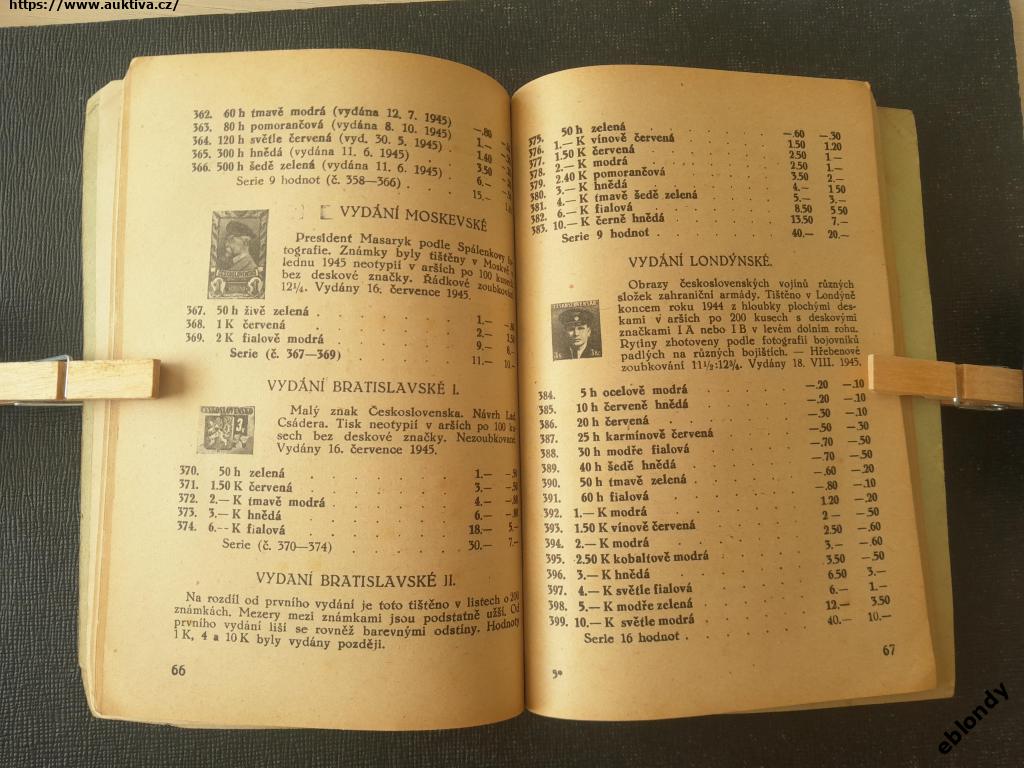 https://www.auktiva.cz/
362. 60 h tmavě modrá (vydána 12. 7. 1945) —.80
363. 80 h pomorančová (vydána 8. 10. 1945) 1.—
364. 120 h světle červená (vyd. 30. 5. 1945) 1.40
365. 300 h hnědá (vydána 11. 6. 1945) 3.50
366. 500 h šedě zelená (vydána 11. 6. 1945) 6.—
Serie 9 hodnot (č. 358—366) 15.—
VYDÁNÍ MOSKEVSKÉ
President Masaryk podle Spálenkovy
tografie. Známky byly tištěny v Moskvě
lednu 1945 neotypií v arších po 100 kusech
bez deskové značky. Řádkové zoubkování
12¼. Vydány 16. července 1945.
367. 50 h živě zelená 1.—
368. 1 K červená 2.—
369. 2 K fialově modrá 9.— 6.—
Serie (č. 367—369) 11.— 10.—
VYDÁNÍ BRATISLAVSKÉ I.
ČESKOSLOVENSKO
3.
Malý znak Československa. Návrh Lad.
Csádera. Tisk neotypií v arších po 100 ku-
sech bez deskové značky. Nezoubkované.
Vydány 16. července 1945.
370. 50 h zelená 1.— —.50
371. 1.50 K červená 3.— —.50
372. 2.— K tmavě modrá 4.— —.80
373. 3.— K hnědá 6.— —.80
374. 6.-- K fialová 18.— 5.—
Serie (č. 370—374) 30.— 7.—
VYDANÍ BRATISLAVSKÉ II.
Na rozdíl od prvního vydání je toto tištěno v listech o 200
známkách. Mezery mezi známkami jsou podstatně užší. Od
prvního vydání liší se rovněž barevnými odstíny. Hodnoty
1 K, 4 a 10 K byly vydány později.
66
375. 50 h zelená —.60 —.30
376. 1.— K vínově červená 1.50 1.20
377. 1.50 K červená 2.50 1.—
378. 2.— K modrá 2.50 1.—
379. 2.40 K pomorančová 3.50 2.—
380. 3.— K hnědá 4.— 1.50
381. 4.— K tmavě šedě zelená 5.— 3.—
382. 6.— K fialová 8.50 5.50
383. 10.— K černě hnědá 13.50 7.—
Serie 9 hodnot 40.— 20.—
VYDÁNÍ LONDÝNSKÉ.
Obrazy československých vojínů různých
složek zahraniční armády. Tištěno v Londýně
koncem roku 1944 z hloubky plochými des-
kami v arších po 200 kusech s deskovými
značkami I A nebo I B v levém dolním rohu.
Rytiny zhotoveny podle fotografií bojovníků
padlých na různých bojištích. — Hřebenové
zoubkování 11½:12¾. Vydány 18. VIII. 1945.
384. 5 h ocelově modrá —.20 —.10
385. 10 h červeně hnědá —.20 —.10
386. 20 h červená —.30 —.10
387. 25 h karmínově červená —.50 —.30
388. 30 h modře fialová —.70 —.50
389. 40 h šedě hnědá —.60 —.20
390. 50 h tmavě zelená —.80 —.10
391. 60 h fialová 1.20 —.20
392. 1.— K modrá 2 — —.50
393. 1.50 K vínově červená 2.50 —.60
394. 2.— K modrá 3.— —.60
395. 2.50 K kobaltově modrá 3.50 —.50
396. 3.— K hnědá 6.50 3.—
397. 4.— K světle fialová 6.— 1.—
398. 5.— K modře zelená 12.— 3.50
399. 10.— K světle modrá 40.— 10.—
Serie 16 hodnot
67
5*
eblondy